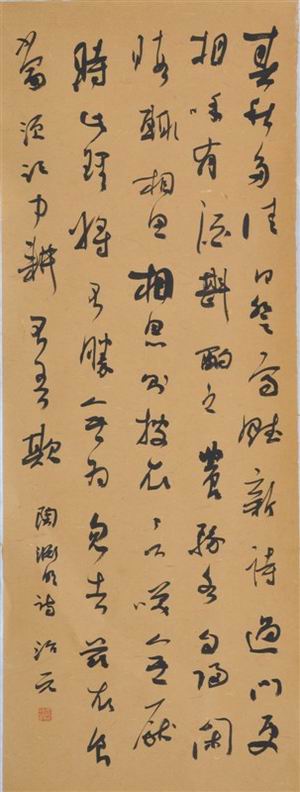 春秋多佳日登高賦新詩過門更
相呼有酒斟酌之農務各自歸閑
暇輒相思相思則披衣言笑無厭
時此理將不勝無為忽去茲衣食
當須紀力耕不吾欺 陶淵明詩 治元